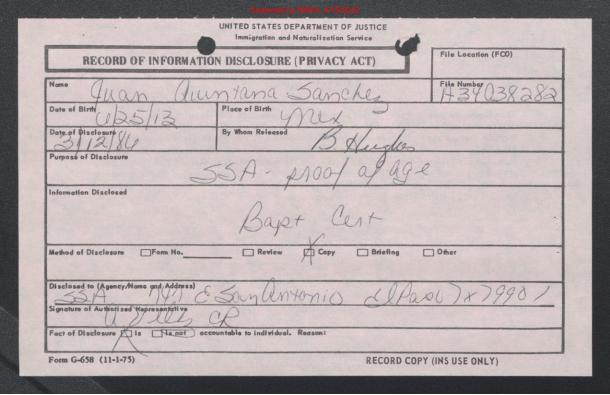 UNITED STATES DEPARTMENT OF JUSTICE
Immigration and Naturalization Service
RECORD OF INFORMATION DISCLOSURE (PRIVACY ACT)
File Location (FCO)
Name
Juan Quintana Sanchez
File Number
A34038282
Date of Birth
6/25/13
Place of Birth
Mex
Date of Disclosure
3/12/86
By Whom Released
B Hughes
Purpose of Disclosure
SSA - proof of age
Information Disclosed
Bapt Cert
Method of Disclosure Form No. Review X Copy Briefing Other
Disclosed to (Agency/Name and Address)
SSA E San Antonio El Paso Tx 79901
Signature of Authorized Representative
CR
Fact of Disclosure X is is not accountable to individual. Reason:
Form G-658 (11-1-75)
RECORD COPY (INS USE ONLY)